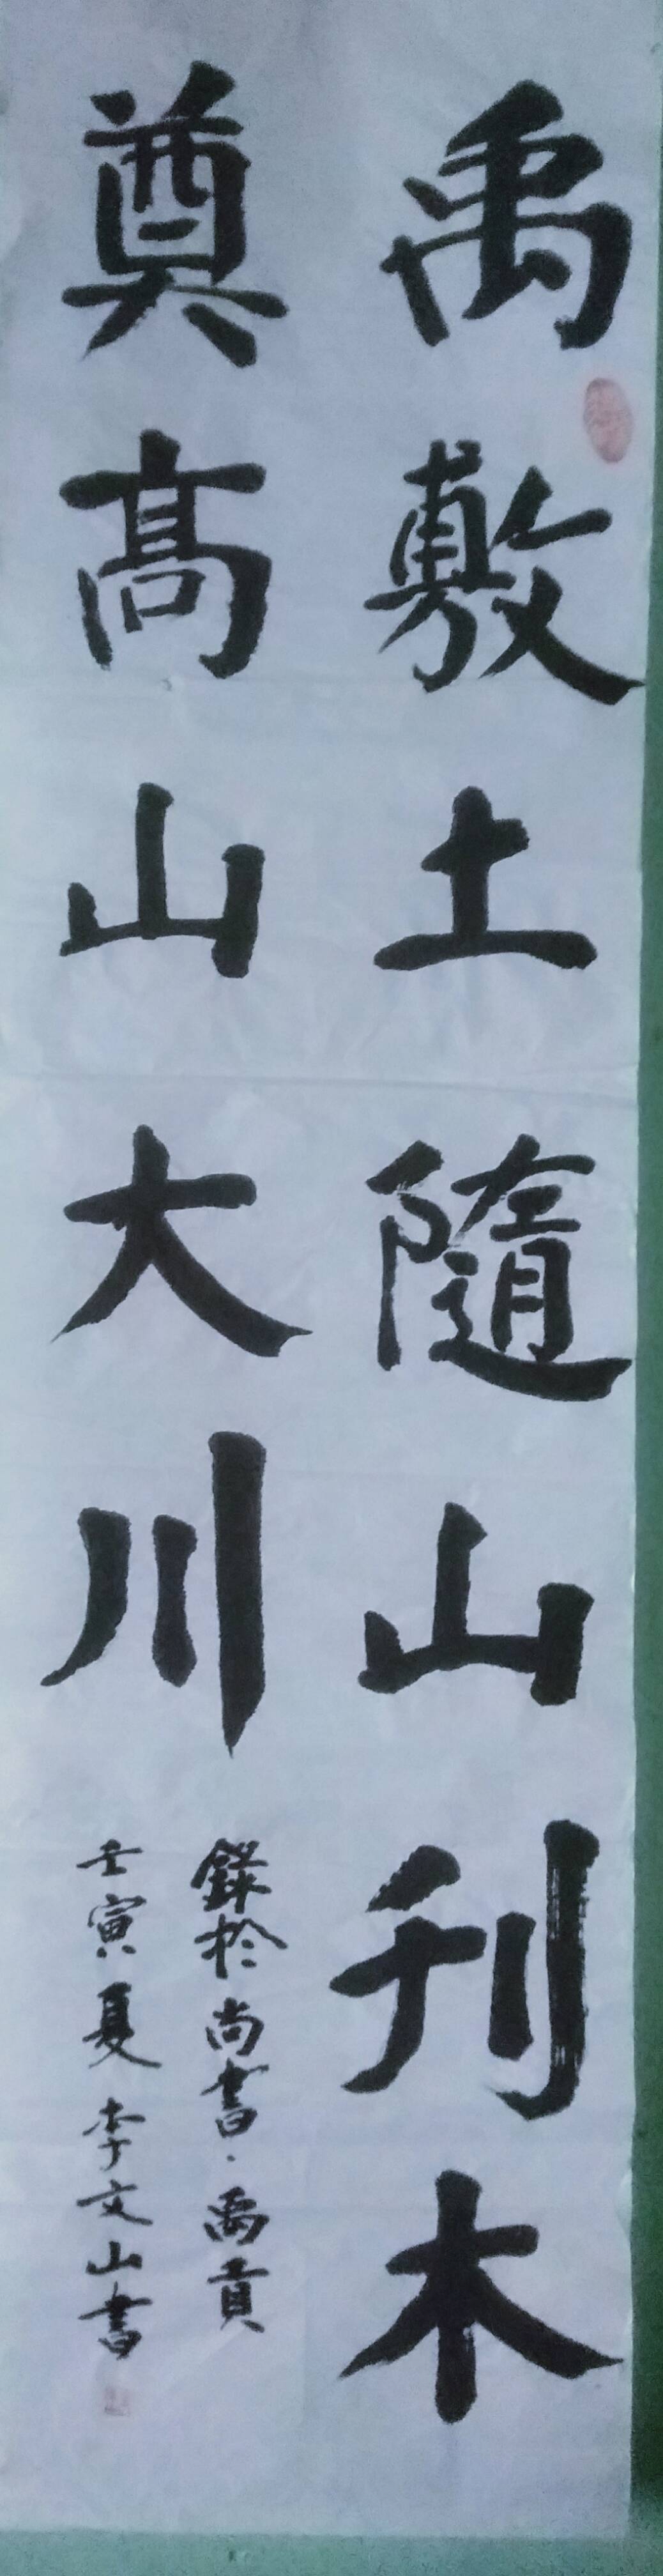 禹敷土隨山刊木
奠高山大川
錄於尚書·禹貢
壬寅夏李文山書